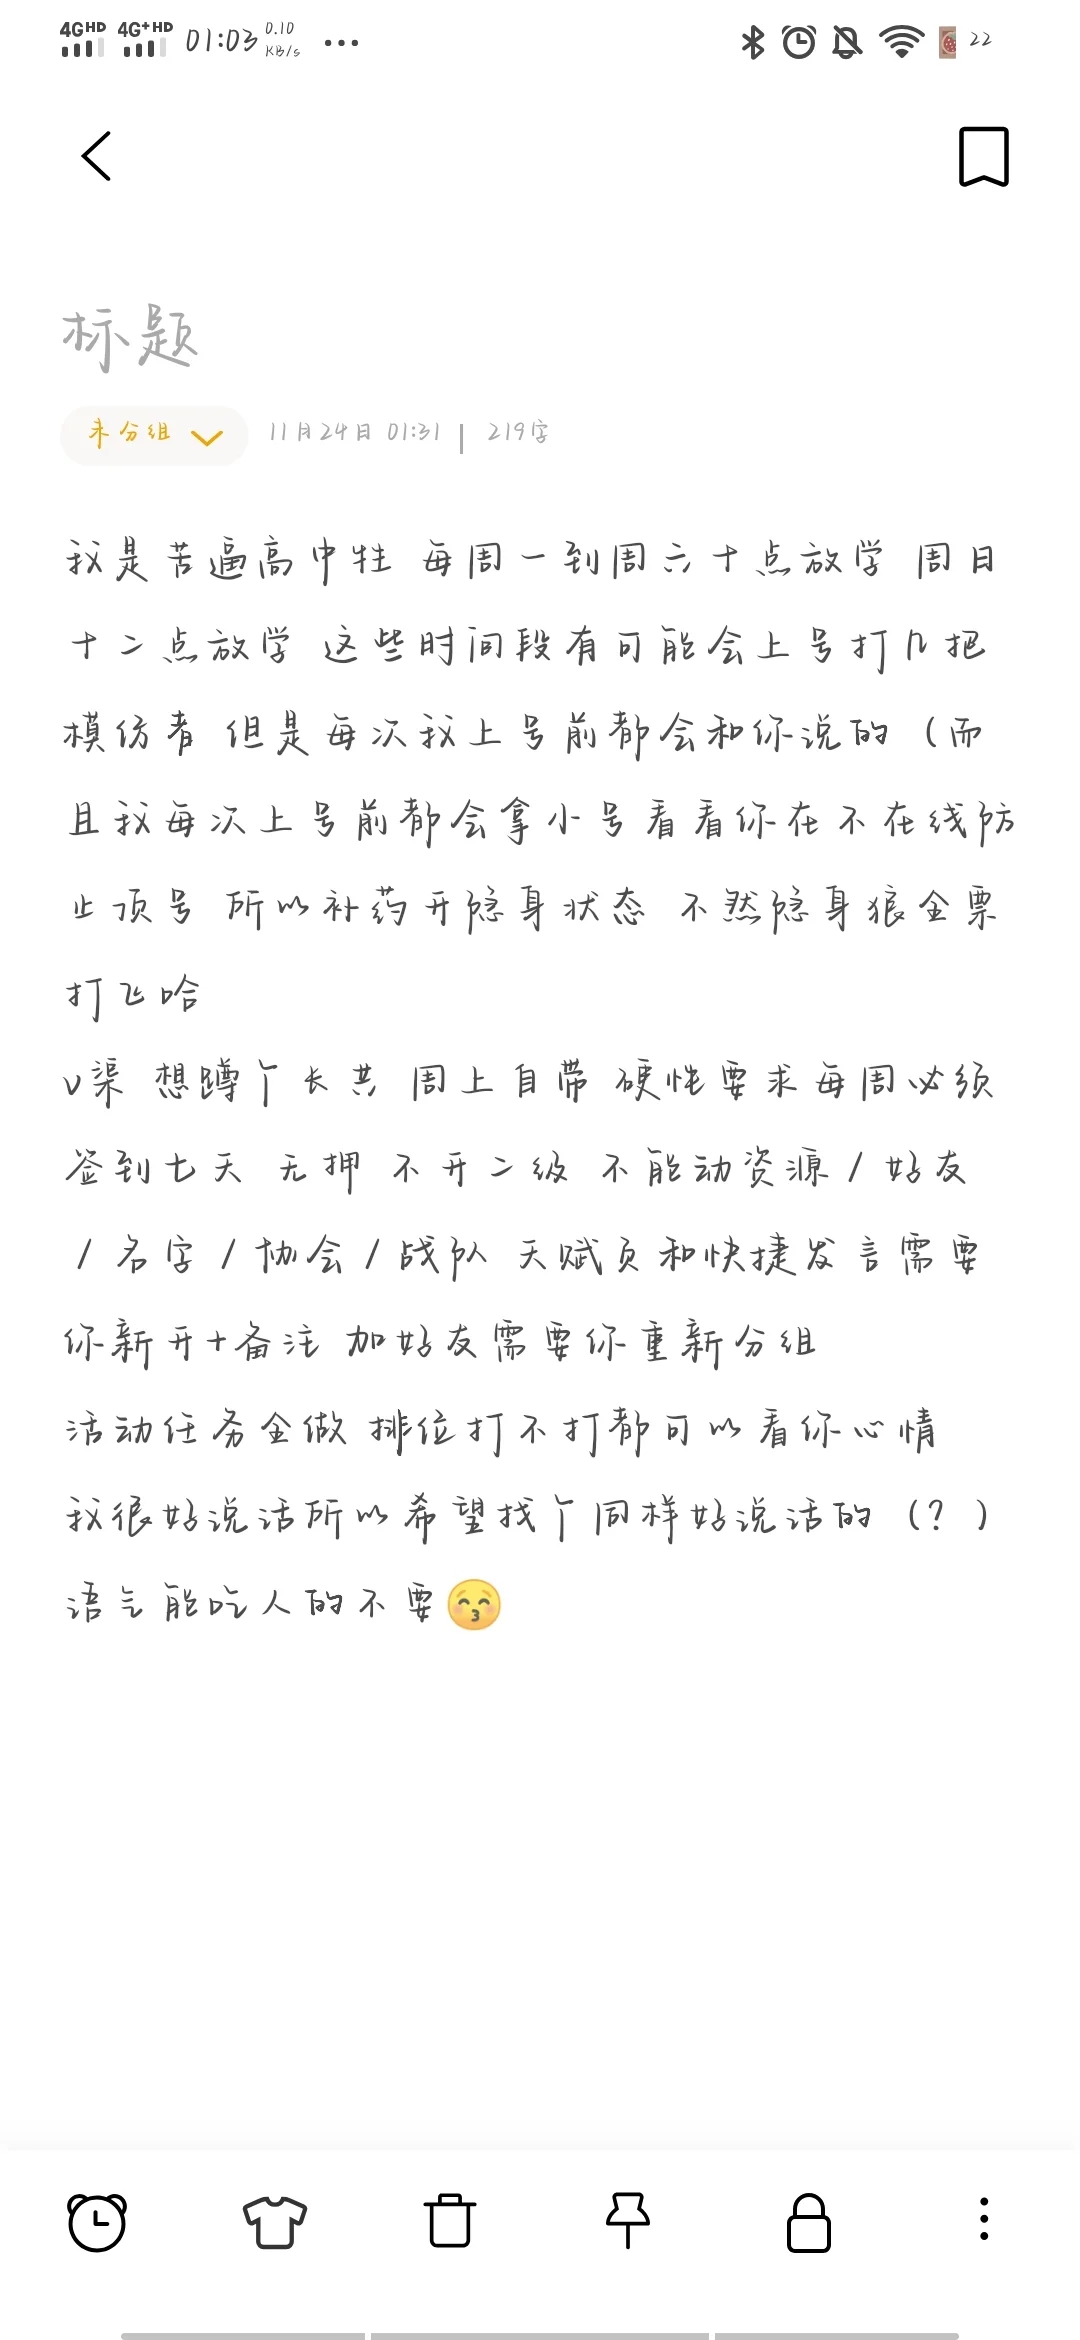 4GHD 4G+HD 01:03 0.10 KB/s ... 22
标题
未分组 11月24日 01:31 | 219字
我是苦逼高中牲 每周一到周六十点放学 周日
十二点放学 这些时间段有可能会上号打几把
模仿者 但是每次我上号前都会和你说的（而
且我每次上号前都会拿小号看看你在不在线防
止顶号 所以补药开隐身状态 不然隐身狼全票
打飞哈
v渠 想蹲个长共 周上自带 硬性要求每周必须
签到七天 无押 不开二级 不能动资源/好友
/名字/协会/战队 天赋页和快捷发言需要
你新开+备注 加好友需要你重新分组
活动任务全做 排位打不打都可以看你心情
我很好说话所以希望找个同样好说话的（？）
语气能吃人的不要😚